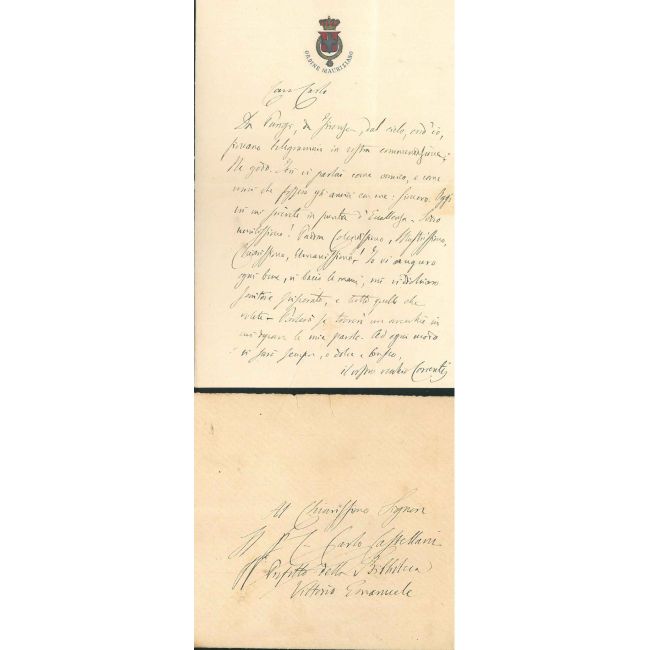 ORDINE MAURIZIANO
Caro Carlo
Da Parigi, da Firenze, dal cielo, cred'io,
piovano telegrammi in vostra commendazione;
Ne godo. Ieri vi parlai come amico, e come
che gli amici sincero. Oggi
voi mi scrivete in punta d'Eccellenza. Sono
umilissimo! Padron Colendissimo, Illustrissimo,
Chiarissimo, Umanissimo! Io vi auguro
ogni bene, vi bacio le mani, mi vi dichiaro
servitore, e tutto quello che
volete. se troverò un in
le mie parole. Ad ogni modo
vi sarò sempre, o dolce o brusco,
il vostro vecchio Correnti
Al Chiarissimo Signore
Carlo Castellani
Prefetto della Biblioteca
Vittorio Emanuele